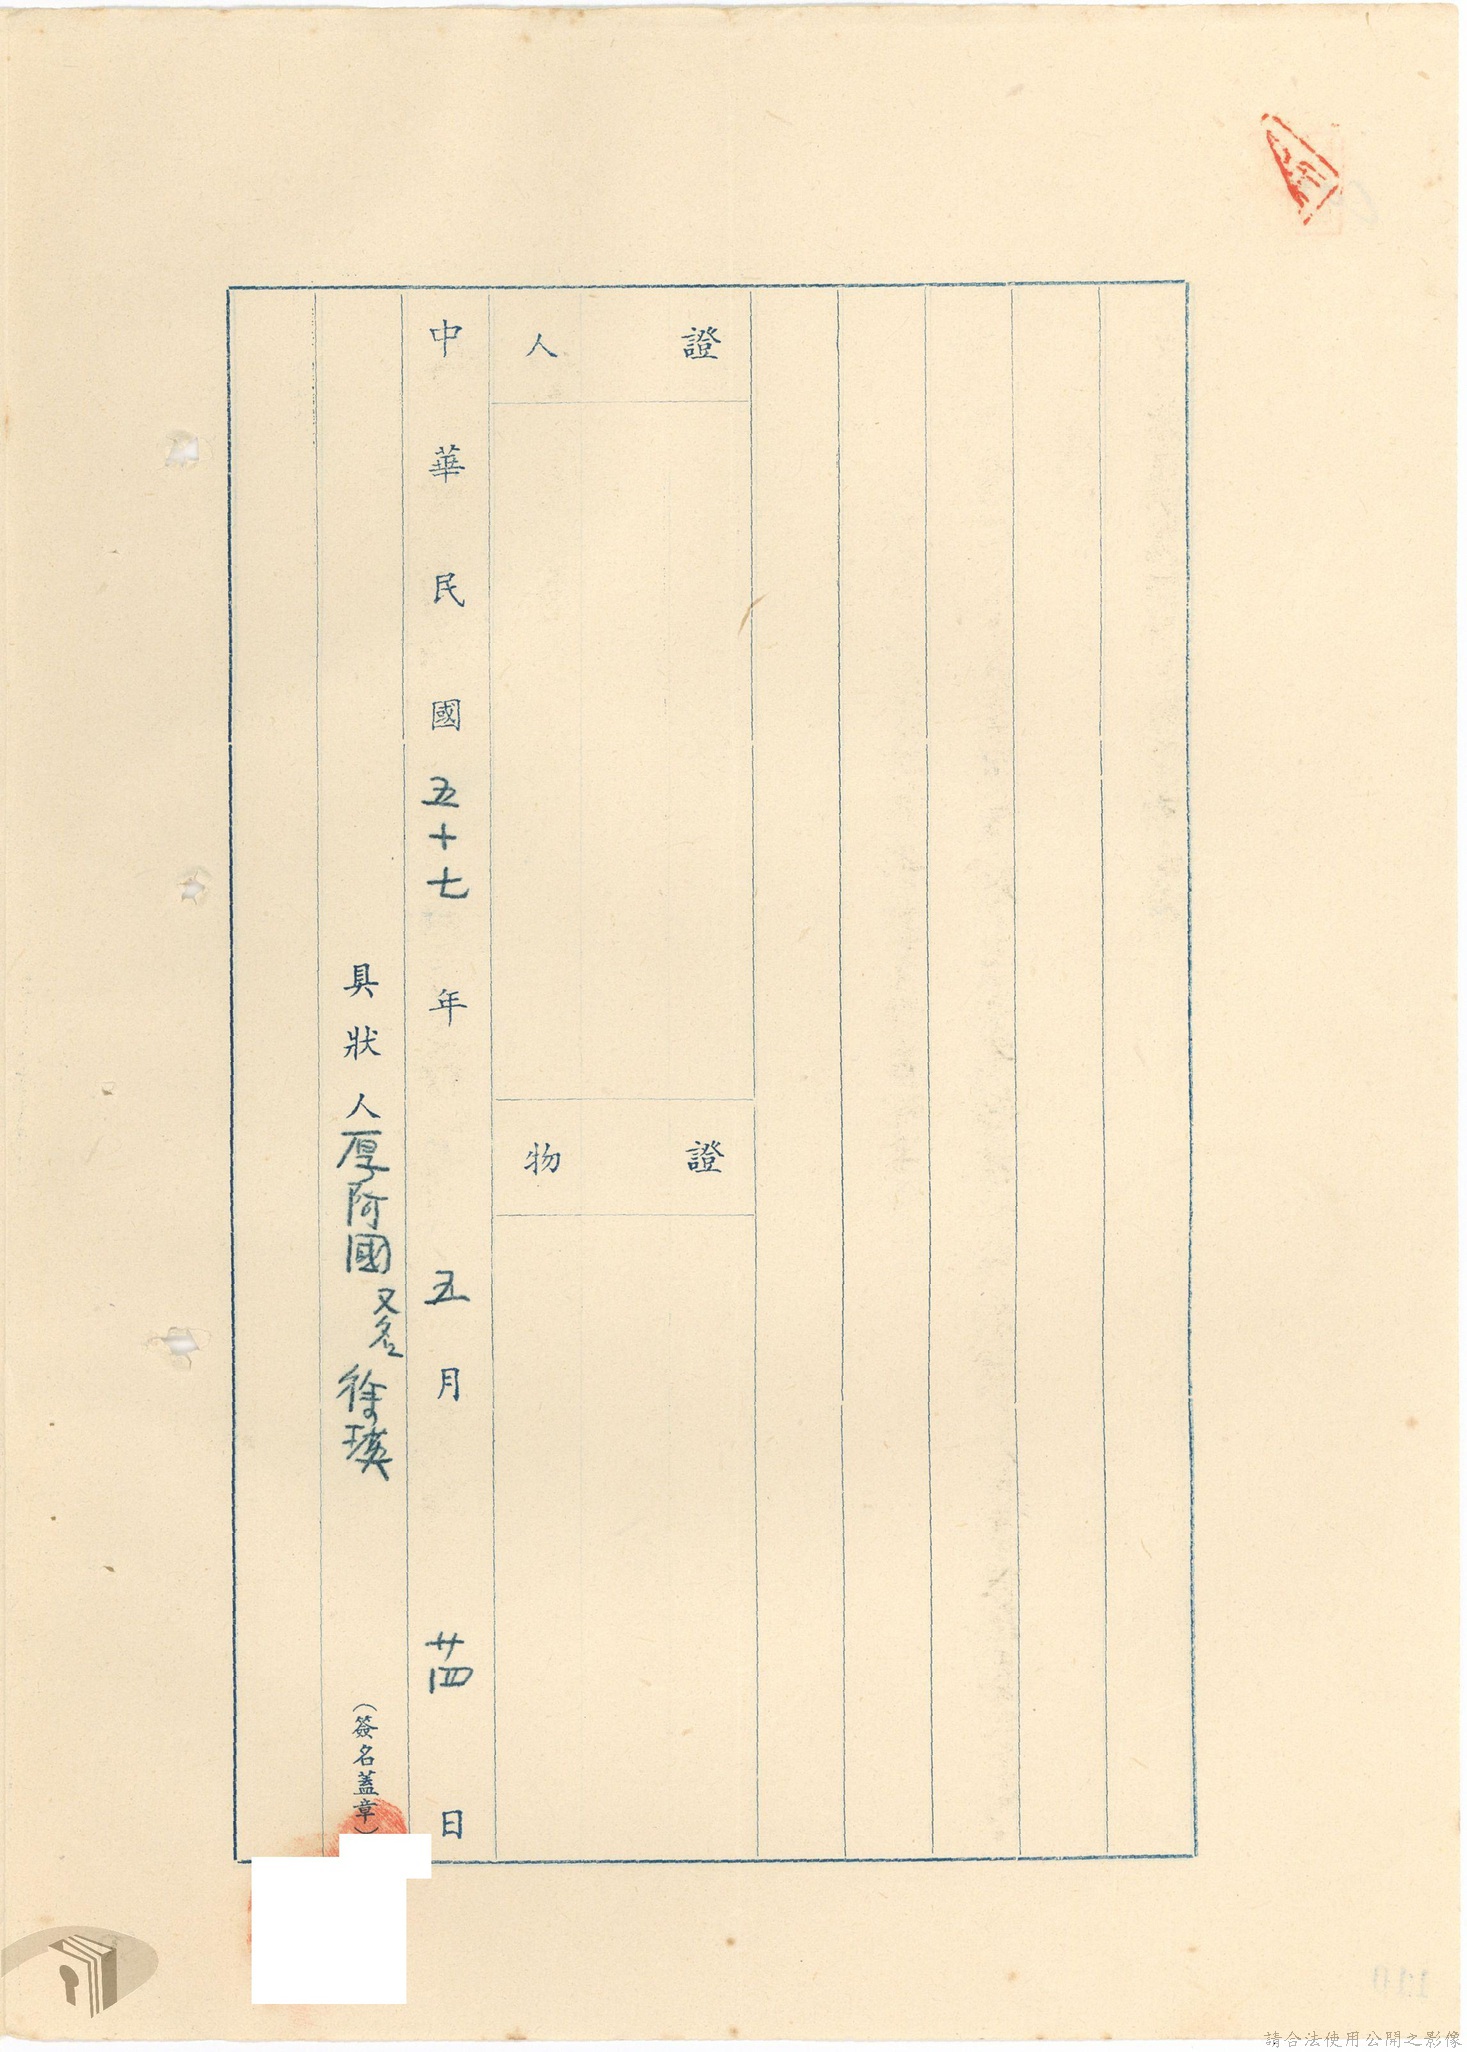 證人
證物
中華民國五十七年五月廿四日
具狀人厚阿國又名徐瑛(簽名蓋章)
請合法使用公開之影像